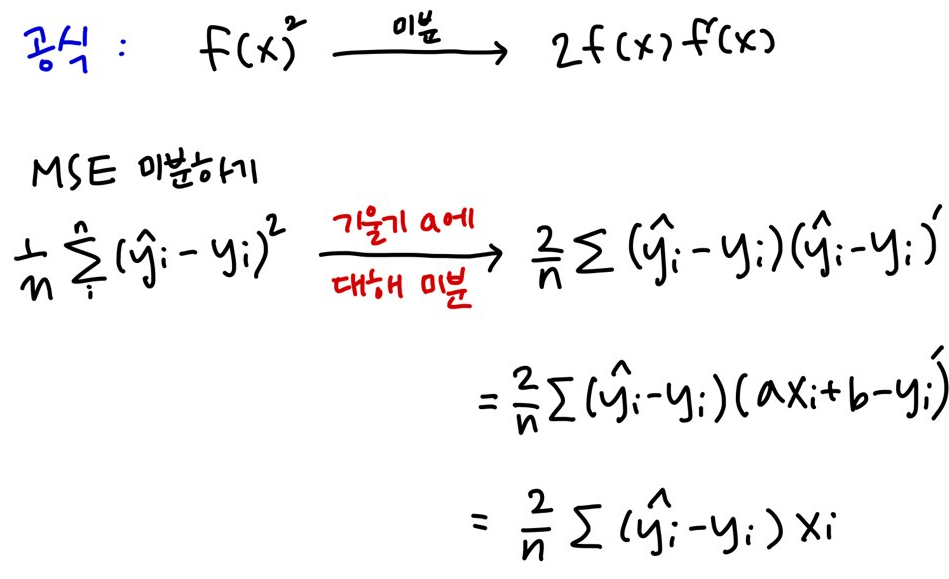 공식 : f(x)² 미분 → 2f(x)f'(x)
MSE 미분하기
1/n Σᵢⁿ (ŷᵢ - yᵢ)² 기울기 a에 대해 미분 → 2/n Σ (ŷᵢ - yᵢ)(ŷᵢ - yᵢ)′
= 2/n Σ (ŷᵢ - yᵢ)(axᵢ + b - yᵢ)′
= 2/n Σ (ŷᵢ - yᵢ) xᵢ